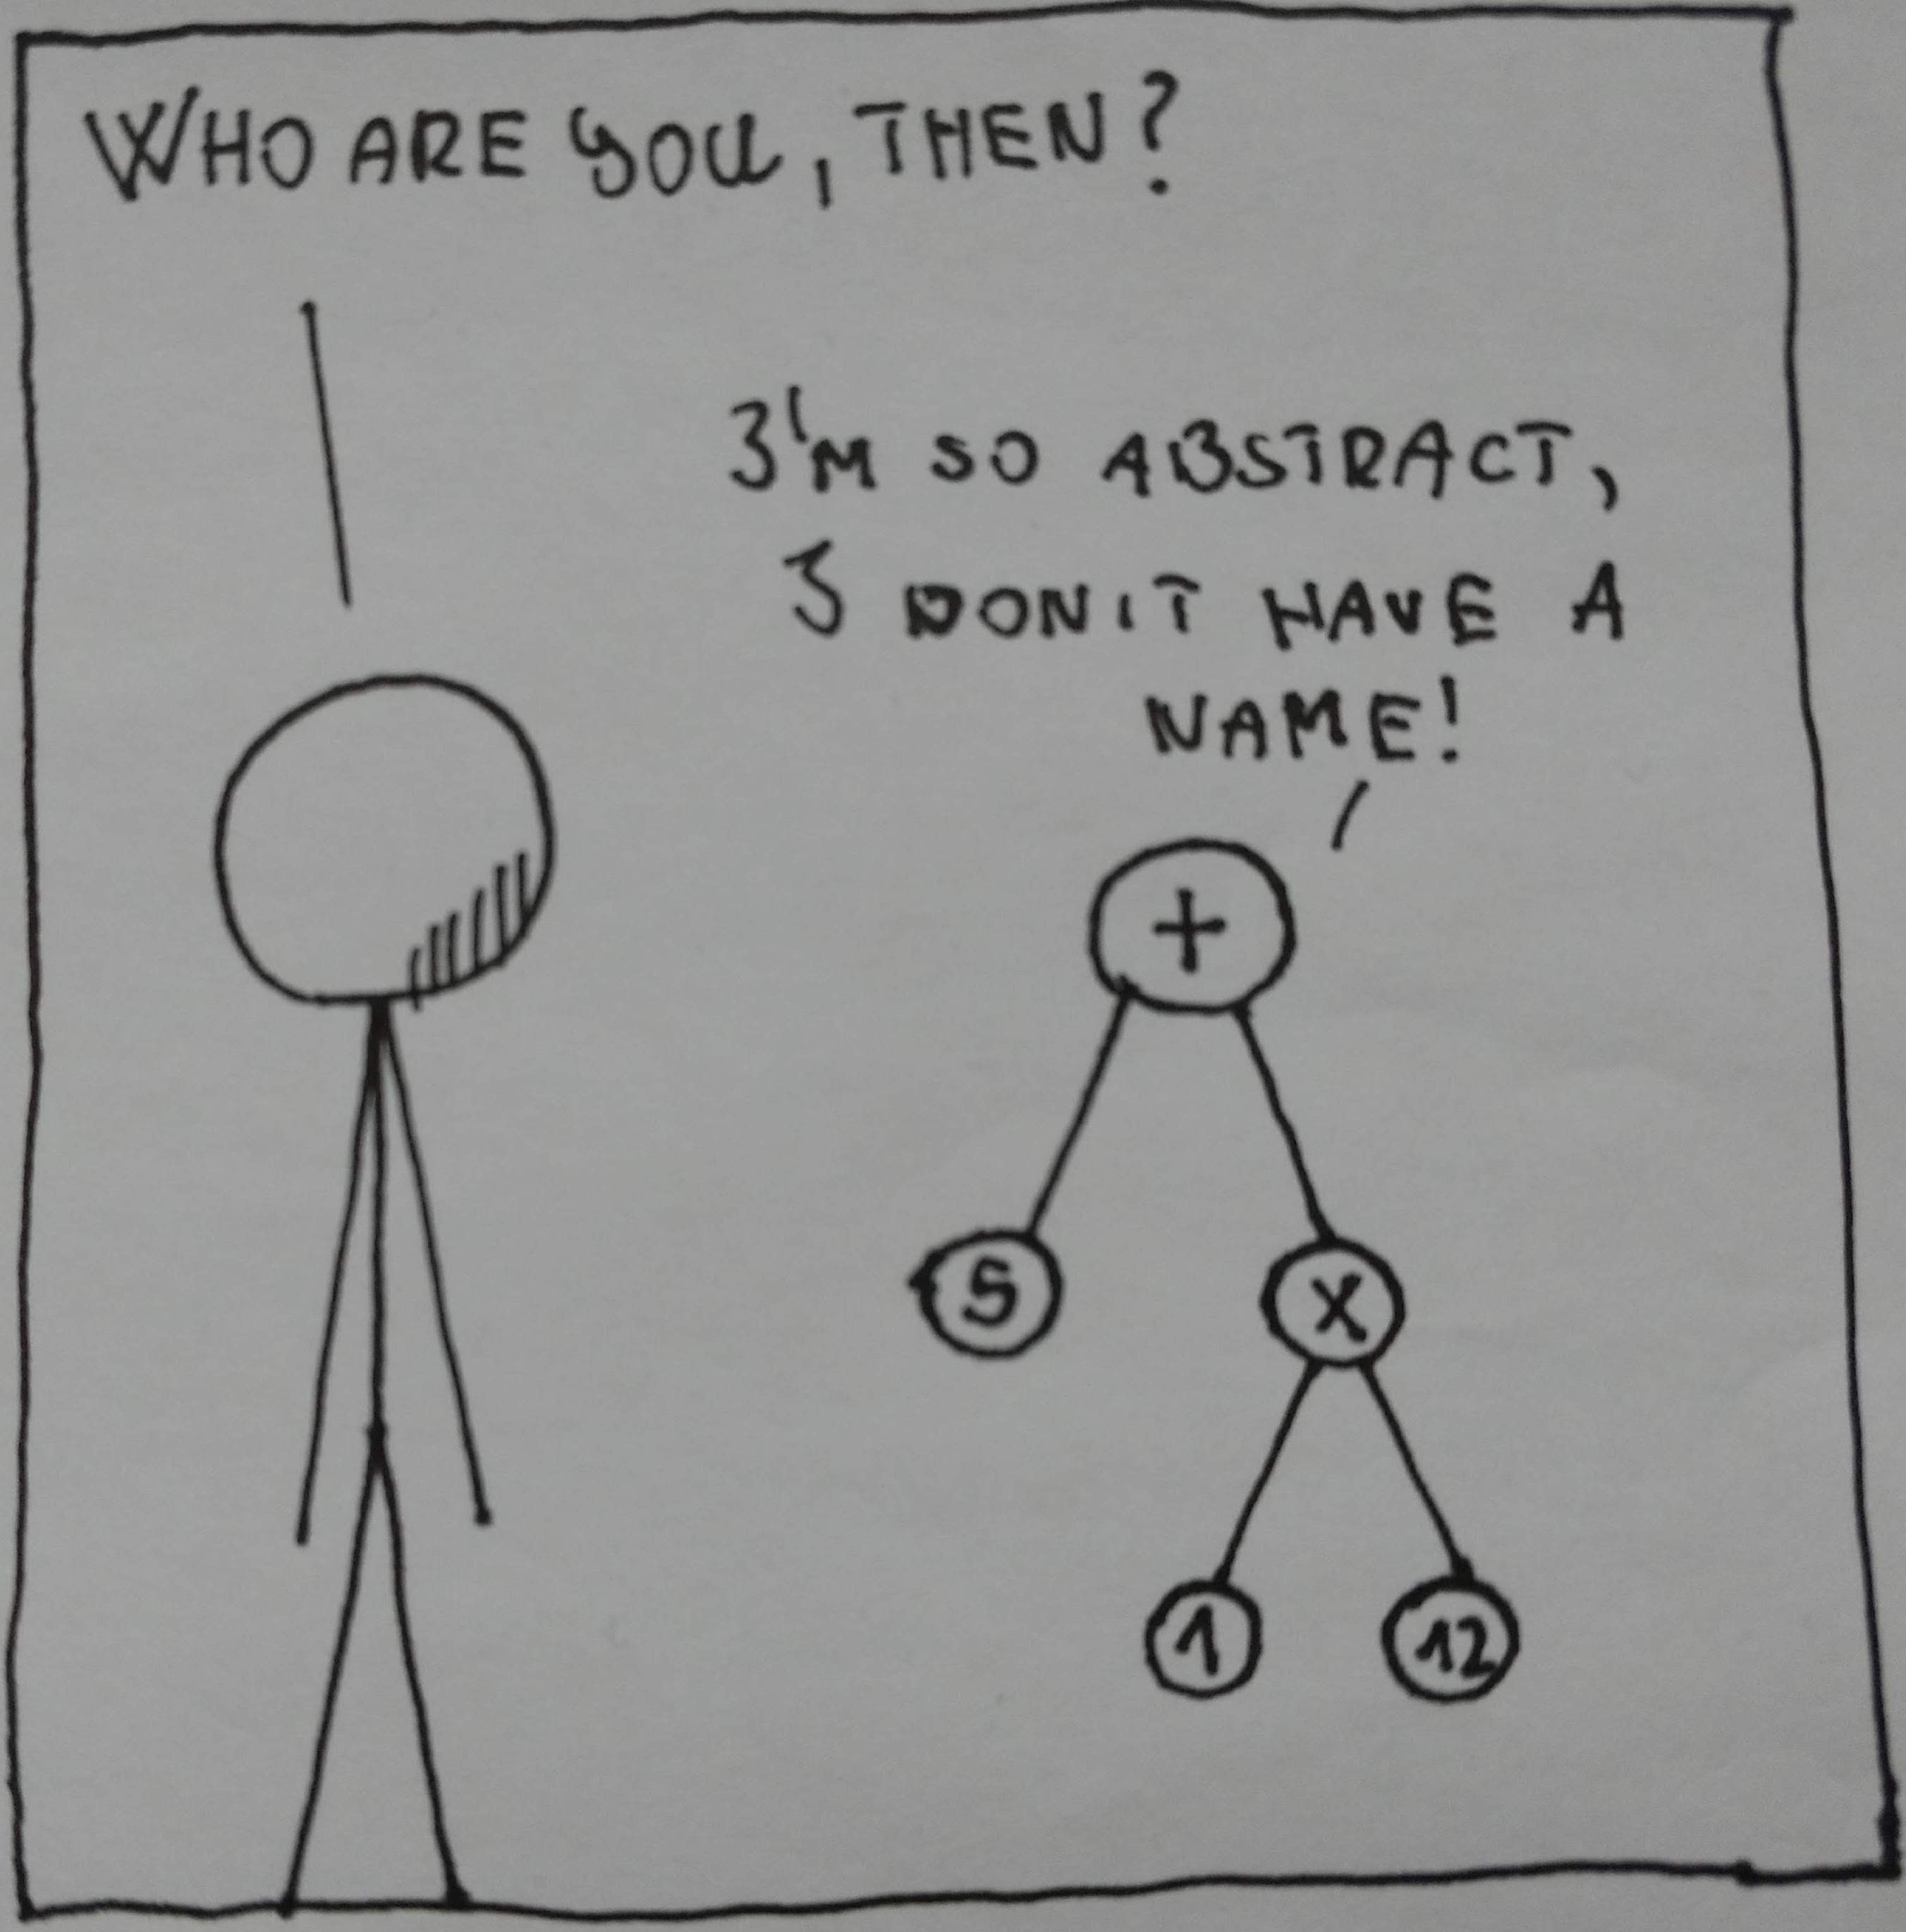 WHO ARE YOU, THEN?
I'M SO ABSTRACT,
I DON'T HAVE A
NAME!
+
5
X
1
12